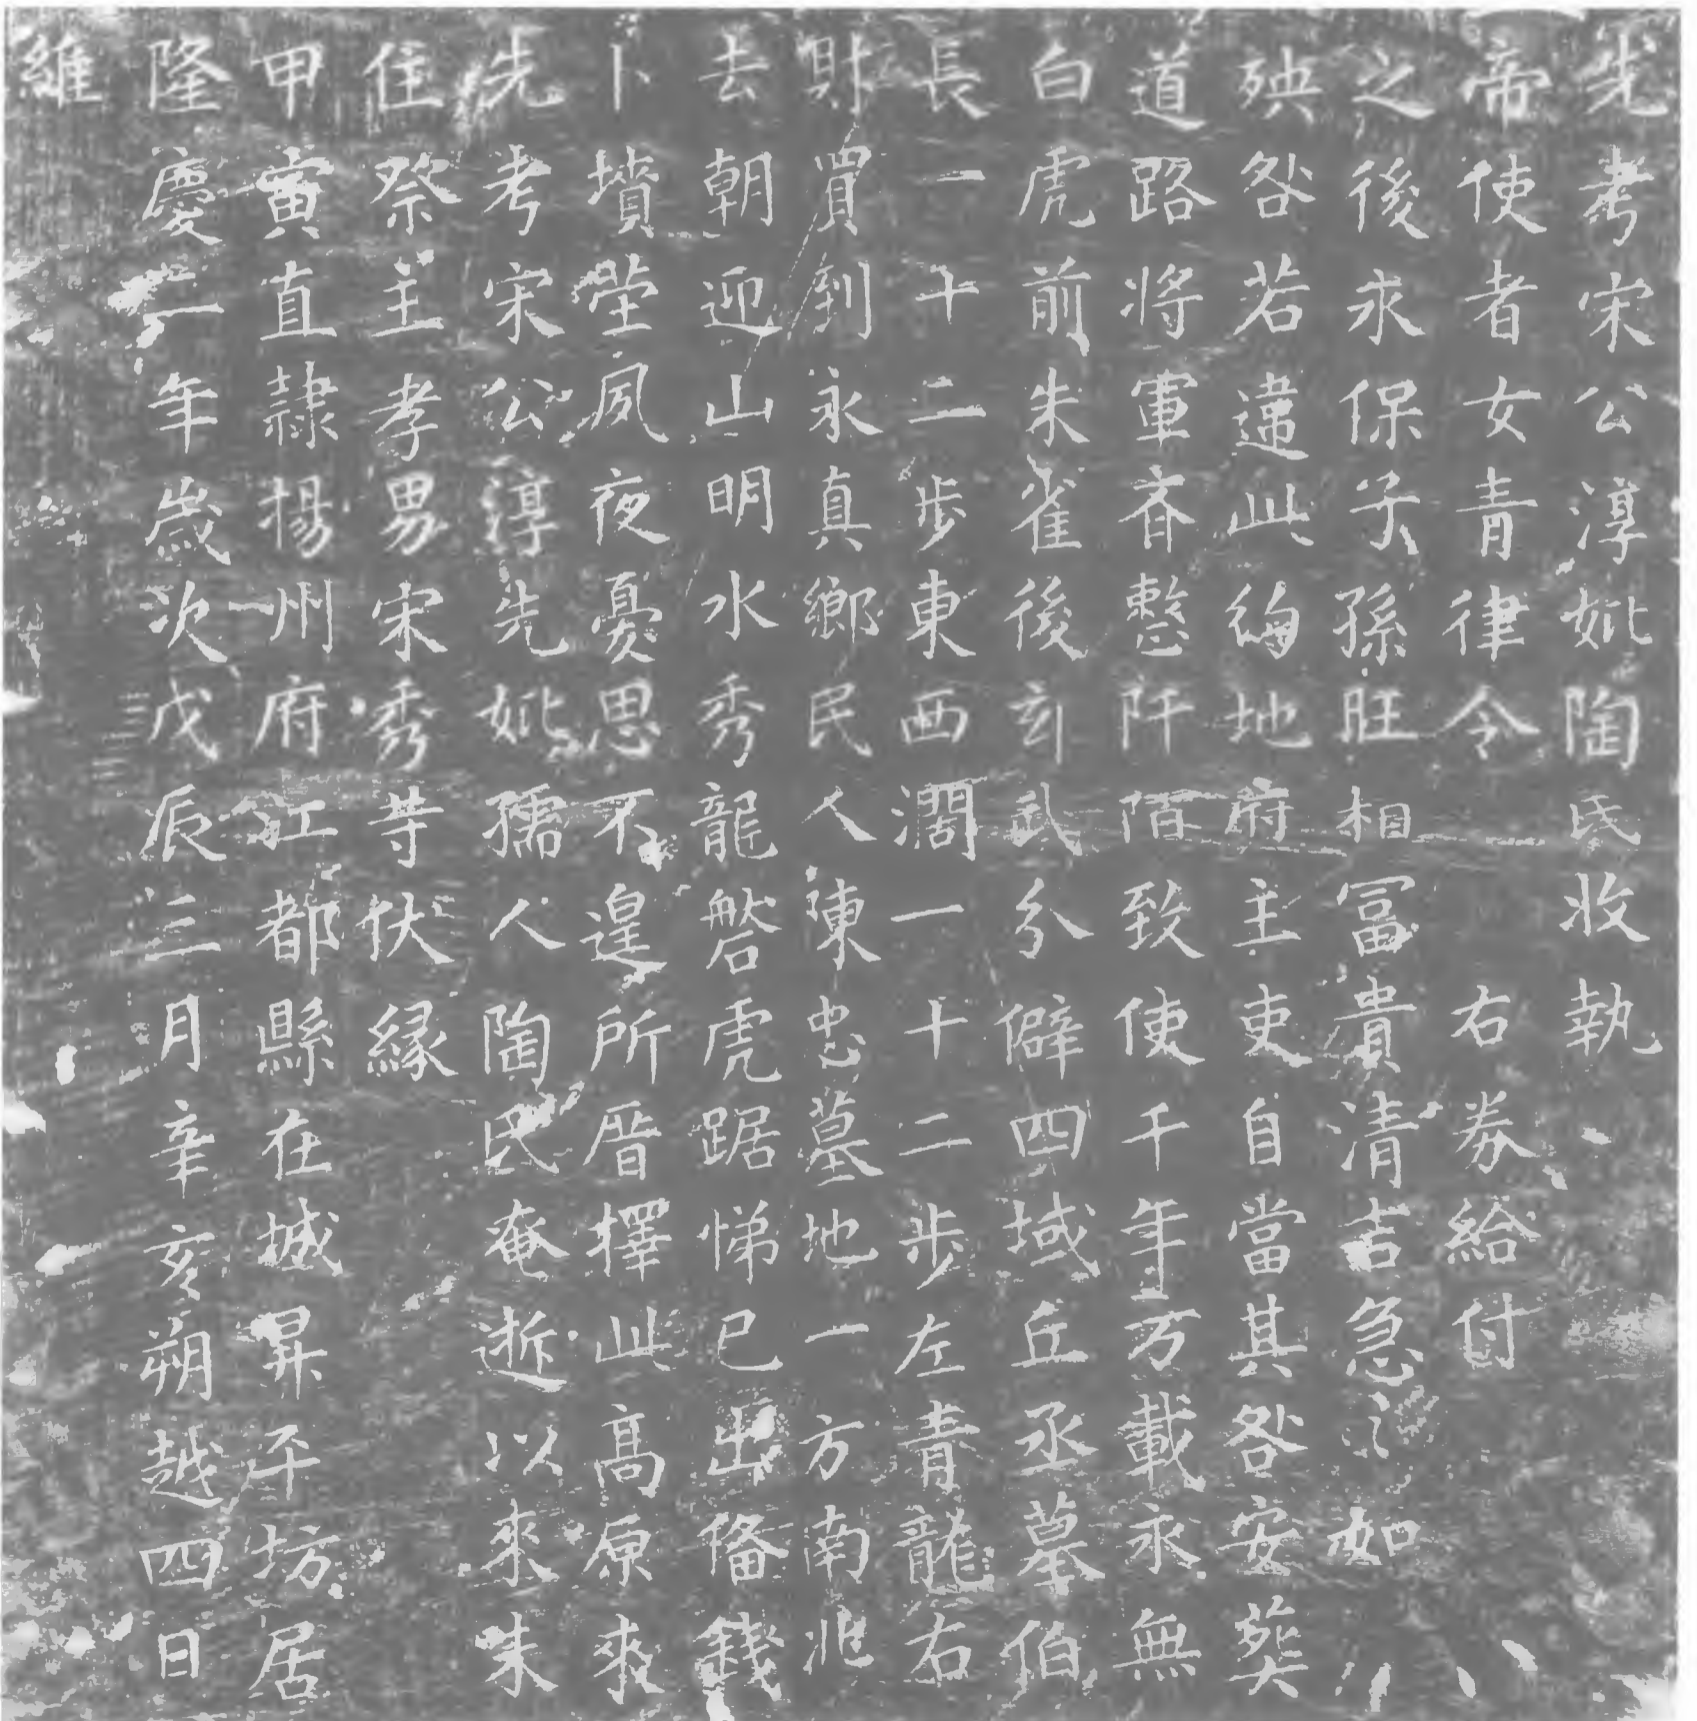 維
隆慶二年歲次戊辰三月辛亥朔越四日
甲寅直隷揚州府江都縣在城昇平坊居
住祭主孝男宋秀等伏緣
先考宋公淳先妣孺人陶氏奄逝以來未
卜墳塋夙夜憂思不遑所厝擇此高原來
去朝迎山明水秀龍磐虎踞悌已出備錢
財買到永真鄉民人陳忠墓地一方南北
長一十二步東西濶一十二步左青龍右
白虎前朱雀後玄武分僻四域丘丞墓伯
道路將軍斉整阡陌致使千年万載永無
殃咎若違此約地府主吏自當其咎安葬
之後永保子孫旺相冨貴清吉急〻如
帝使者女青律令 右券給付
先考宋公淳妣陶氏收執